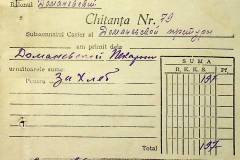 Raionul Доманевский
Chitanța Nr. 79
Subsemnatul Casier al Доманевской претуры
am primit dela
Доманевской Пекарни
următoarele sume:
Pentru За хлеб
SUMA
R.K.K.S. Pf.
197
Total 197